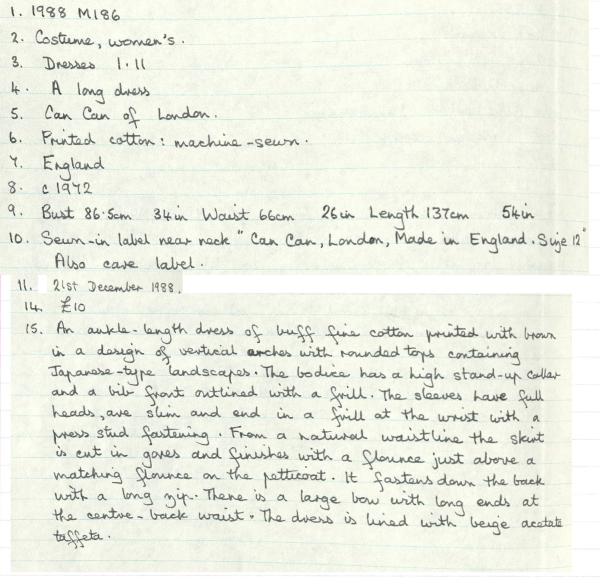 1. 1988 M186
2. Costume, women's.
3. Dresses 1.11
4. A long dress
5. Can Can of London.
6. Printed cotton: machine-sewn.
7. England
8. c 1972
9. Bust 86.5cm 34in Waist 66cm 26in Length 137cm 54in
10. Sewn-in label near neck "Can Can, London, Made in England. Size 12"
Also care label.
11. 21st December 1988.
14. £10
15. An ankle-length dress of buff fine cotton printed with brown
in a design of vertical arches with rounded tops containing
Japanese-type landscapes. The bodice has a high stand-up collar
and a bib front outlined with a frill. The sleeves have full
heads, are slim and end in a frill at the wrist with a
press stud fastening. From a natural waistline the skirt
is cut in gores and finishes with a flounce just above a
matching flounce on the petticoat. It fastens down the back
with a long zip. There is a large bow with long ends at
the centre-back waist. The dress is lined with beige acetate
taffeta.